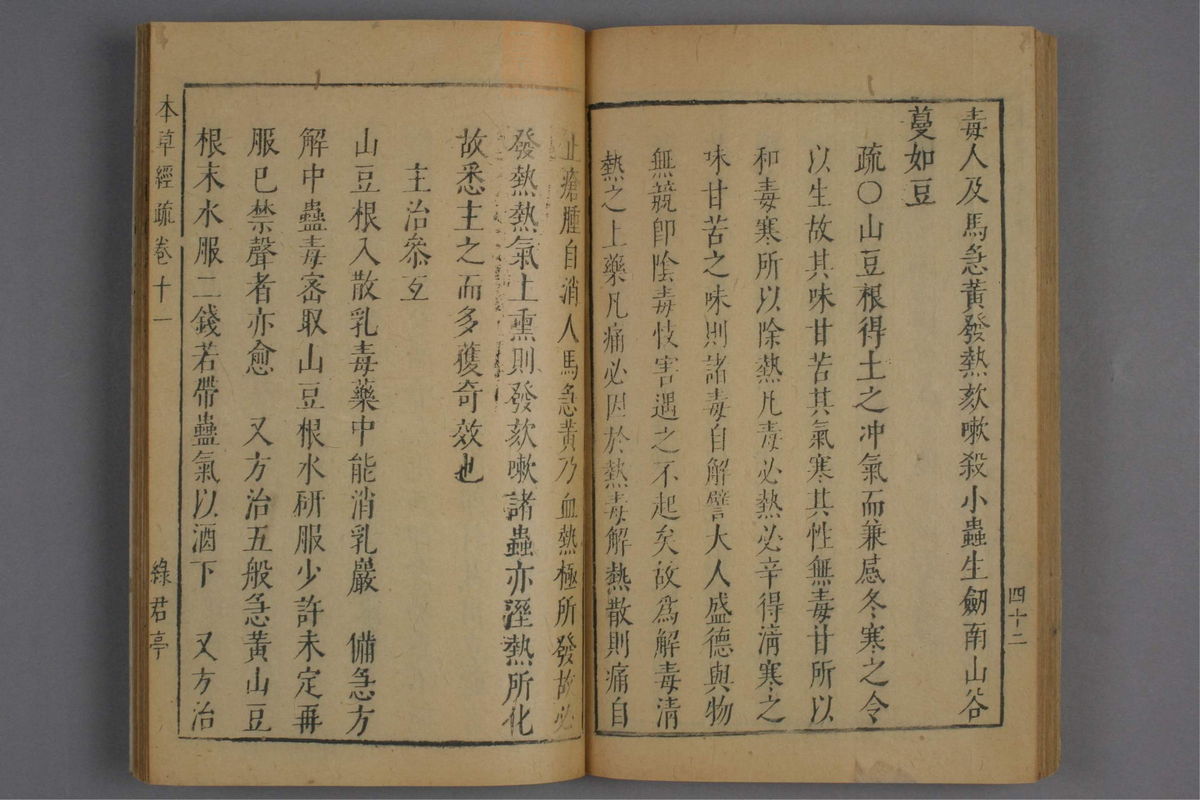 毒人及馬急黃發熱欬嗽殺小蟲生劒南山谷
蔓如豆
疏○山豆根得土之冲氣而兼感冬寒之令
以生故其味甘苦其氣寒其性無毒甘所以
和毒寒所以除熱凡毒必熱必辛得淸寒之
味甘苦之味則諸毒自解譬大人盛德與物
無競卽陰毒忮害遇之不起矣故爲解毒清
熱之上藥凡痛必因於熱毒解熱散則痛自
四十二
止瘡腫自消人馬急黃乃血熱極所發故必
發熱熱氣上熏則發欬嗽諸蟲亦溼熱所化
故悉主之而多獲奇效也
主治叅互
山豆根入散乳毒藥中能消乳巖 備急方
解中蠱毒密取山豆根水研服少許未定再
服已禁聲者亦愈 又方治五般急黃山豆
根末水服二錢若帶蠱氣以酒下 又方治
本草經疏卷十一
綠君亭